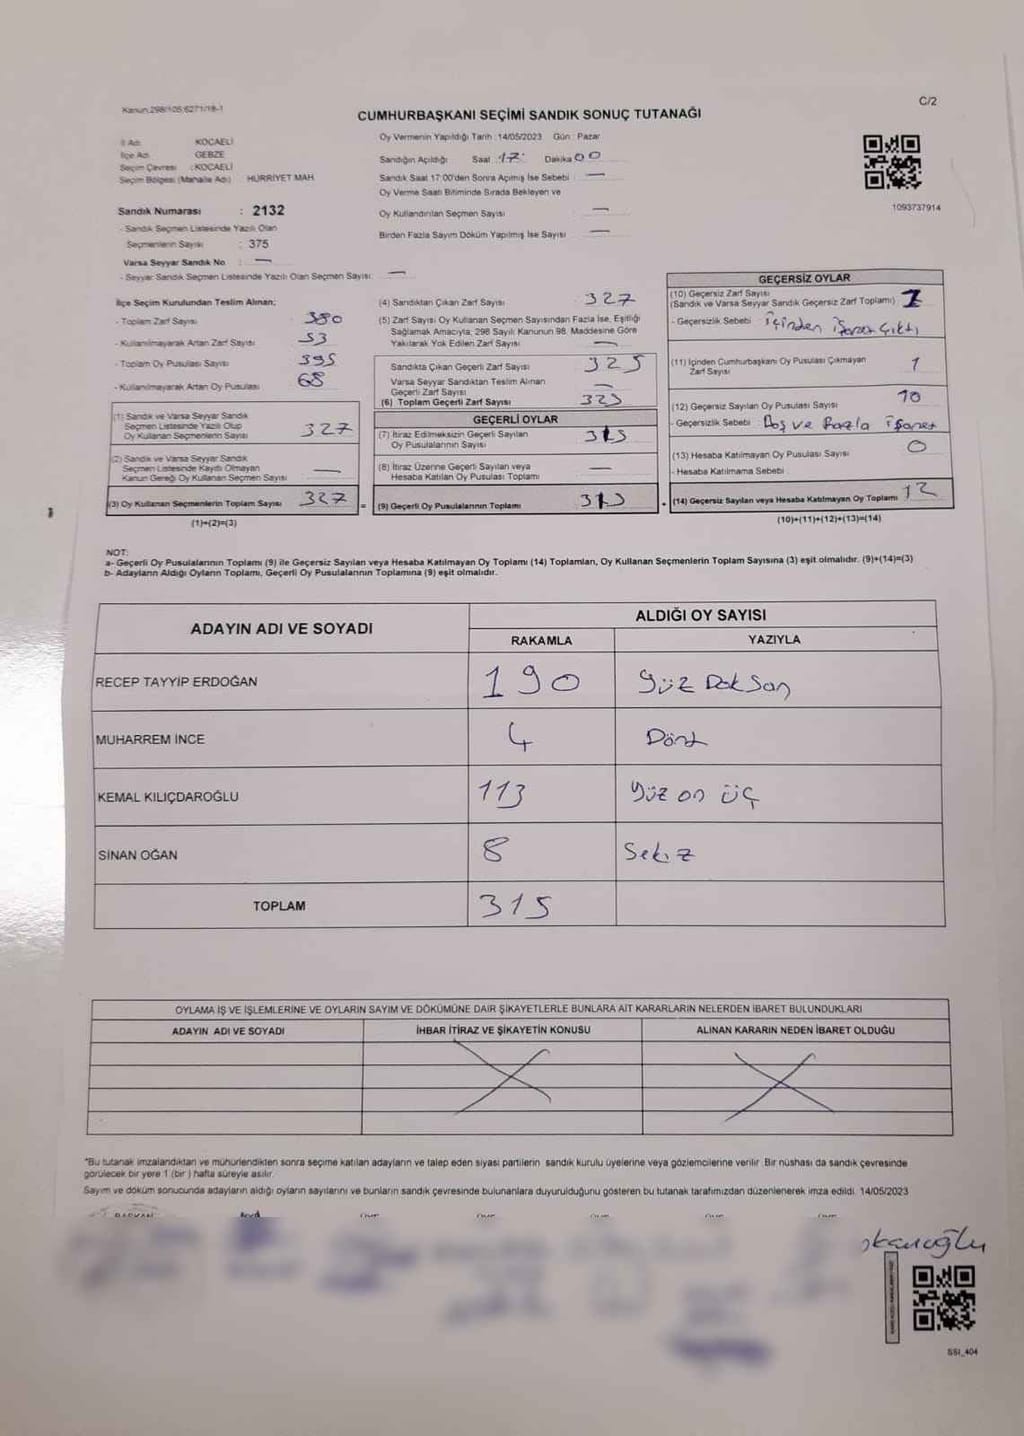 Kanun 298/105,6271/18-1
C/2
CUMHURBAŞKANI SEÇİMİ SANDIK SONUÇ TUTANAĞI
İl Adı KOCAELİ
İlçe Adı GEBZE
Seçim Çevresi : KOCAELİ
Seçim Bölgesi (Mahalle Adı) HÜRRİYET MAH.
Oy Vermenin Yapıldığı Tarih : 14/05/2023 Gün : Pazar
Sandığın Açıldığı Saat : 17: Dakika 00
Sandık Saat 17:00'den Sonra Açılmış İse Sebebi : —
Oy Verme Saati Bitiminde Sırada Bekleyen ve
Oy Kullandırılan Seçmen Sayısı —
Birden Fazla Sayım Döküm Yapılmış İse Sayısı —
1093737914
Sandık Numarası : 2132
- Sandık Seçmen Listesinde Yazılı Olan
Seçmenlerin Sayısı : 375
Varsa Seyyar Sandık No : —
- Seyyar Sandık Seçmen Listesinde Yazılı Olan Seçmen Sayısı: —
İlçe Seçim Kurulundan Teslim Alınan;
- Toplam Zarf Sayısı 380
- Kullanılmayarak Artan Zarf Sayısı 53
- Toplam Oy Pusulası Sayısı 395
- Kullanılmayarak Artan Oy Pusulası 68
(1) Sandık ve Varsa Seyyar Sandık
Seçmen Listesinde Yazılı Olup
Oy Kullanan Seçmenlerin Sayısı 327
(2) Sandık ve Varsa Seyyar Sandık
Seçmen Listesinde Kaydı Olmayan
Kanun Gereği Oy Kullanan Seçmen Sayısı —
(3) Oy Kullanan Seçmenlerin Toplam Sayısı 327 =
(1)+(2)=(3)
(4) Sandıktan Çıkan Zarf Sayısı 327
(5) Zarf Sayısı Oy Kullanan Seçmen Sayısından Fazla İse, Eşitliği
Sağlamak Amacıyla, 298 Sayılı Kanunun 98. Maddesine Göre
Yakılarak Yok Edilen Zarf Sayısı —
Sandıkta Çıkan Geçerli Zarf Sayısı 325
Varsa Seyyar Sandıktan Teslim Alınan
Geçerli Zarf Sayısı —
(6) Toplam Geçerli Zarf Sayısı 325
GEÇERLİ OYLAR
(7) İtiraz Edilmeksizin Geçerli Sayılan
Oy Pusulalarının Sayısı 315
(8) İtiraz Üzerine Geçerli Sayılan veya
Hesaba Katılan Oy Pusulası Toplamı —
(9) Geçerli Oy Pusulalarının Toplamı 315 +
GEÇERSİZ OYLAR
(10) Geçersiz Zarf Sayısı
(Sandık ve Varsa Seyyar Sandık Geçersiz Zarf Toplamı) 1
- Geçersizlik Sebebi İçinden işaret çıktı
(11) İçinden Cumhurbaşkanı Oy Pusulası Çıkmayan
Zarf Sayısı 1
(12) Geçersiz Sayılan Oy Pusulası Sayısı 10
- Geçersizlik Sebebi Boş ve fazla işaret
(13) Hesaba Katılmayan Oy Pusulası Sayısı 0
- Hesaba Katılmama Sebebi
(14) Geçersiz Sayılan veya Hesaba Katılmayan Oy Toplamı 12
(10)+(11)+(12)+(13)=(14)
NOT:
a- Geçerli Oy Pusulalarının Toplamı (9) ile Geçersiz Sayılan veya Hesaba Katılmayan Oy Toplamı (14) Toplamları, Oy Kullanan Seçmenlerin Toplam Sayısına (3) eşit olmalıdır. (9)+(14)=(3)
b- Adayların Aldığı Oyların Toplamı, Geçerli Oy Pusulalarının Toplamına (9) eşit olmalıdır.
ADAYIN ADI VE SOYADI
ALDIĞI OY SAYISI
RAKAMLA YAZIYLA
RECEP TAYYİP ERDOĞAN 190 Yüz Doksan
MUHARREM İNCE 4 Dört
KEMAL KILIÇDAROĞLU 113 Yüz on üç
SİNAN OĞAN 8 Sekiz
TOPLAM 315
OYLAMA İŞ VE İŞLEMLERİNE VE OYLARIN SAYIM VE DÖKÜMÜNE DAİR ŞİKAYETLERLE BUNLARA AİT KARARLARIN NELERDEN İBARET BULUNDUKLARI
ADAYIN ADI VE SOYADI İHBAR İTİRAZ VE ŞİKAYETİN KONUSU ALINAN KARARIN NEDEN İBARET OLDUĞU
*Bu tutanak imzalandıktan ve mühürlendikten sonra seçime katılan adayların ve talep eden siyasi partilerin sandık kurulu üyelerine veya gözlemcilerine verilir. Bir nüshası da sandık çevresinde
görülecek bir yere 1 (bir ) hafta süreyle asılır.
Sayım ve döküm sonucunda adayların aldığı oyların sayılarını ve bunların sandık çevresinde bulunanlara duyurulduğunu gösteren bu tutanak tarafımızdan düzenlenerek imza edildi. 14/05/2023
BAŞKAN
SSI_404